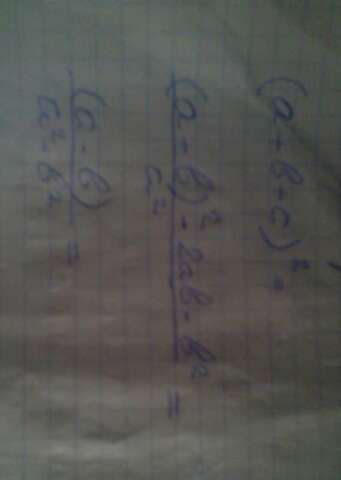 (a + b - c)² =
(a - b)² - 2ab - b²
a²
=
(a - b)
a² - b²
=